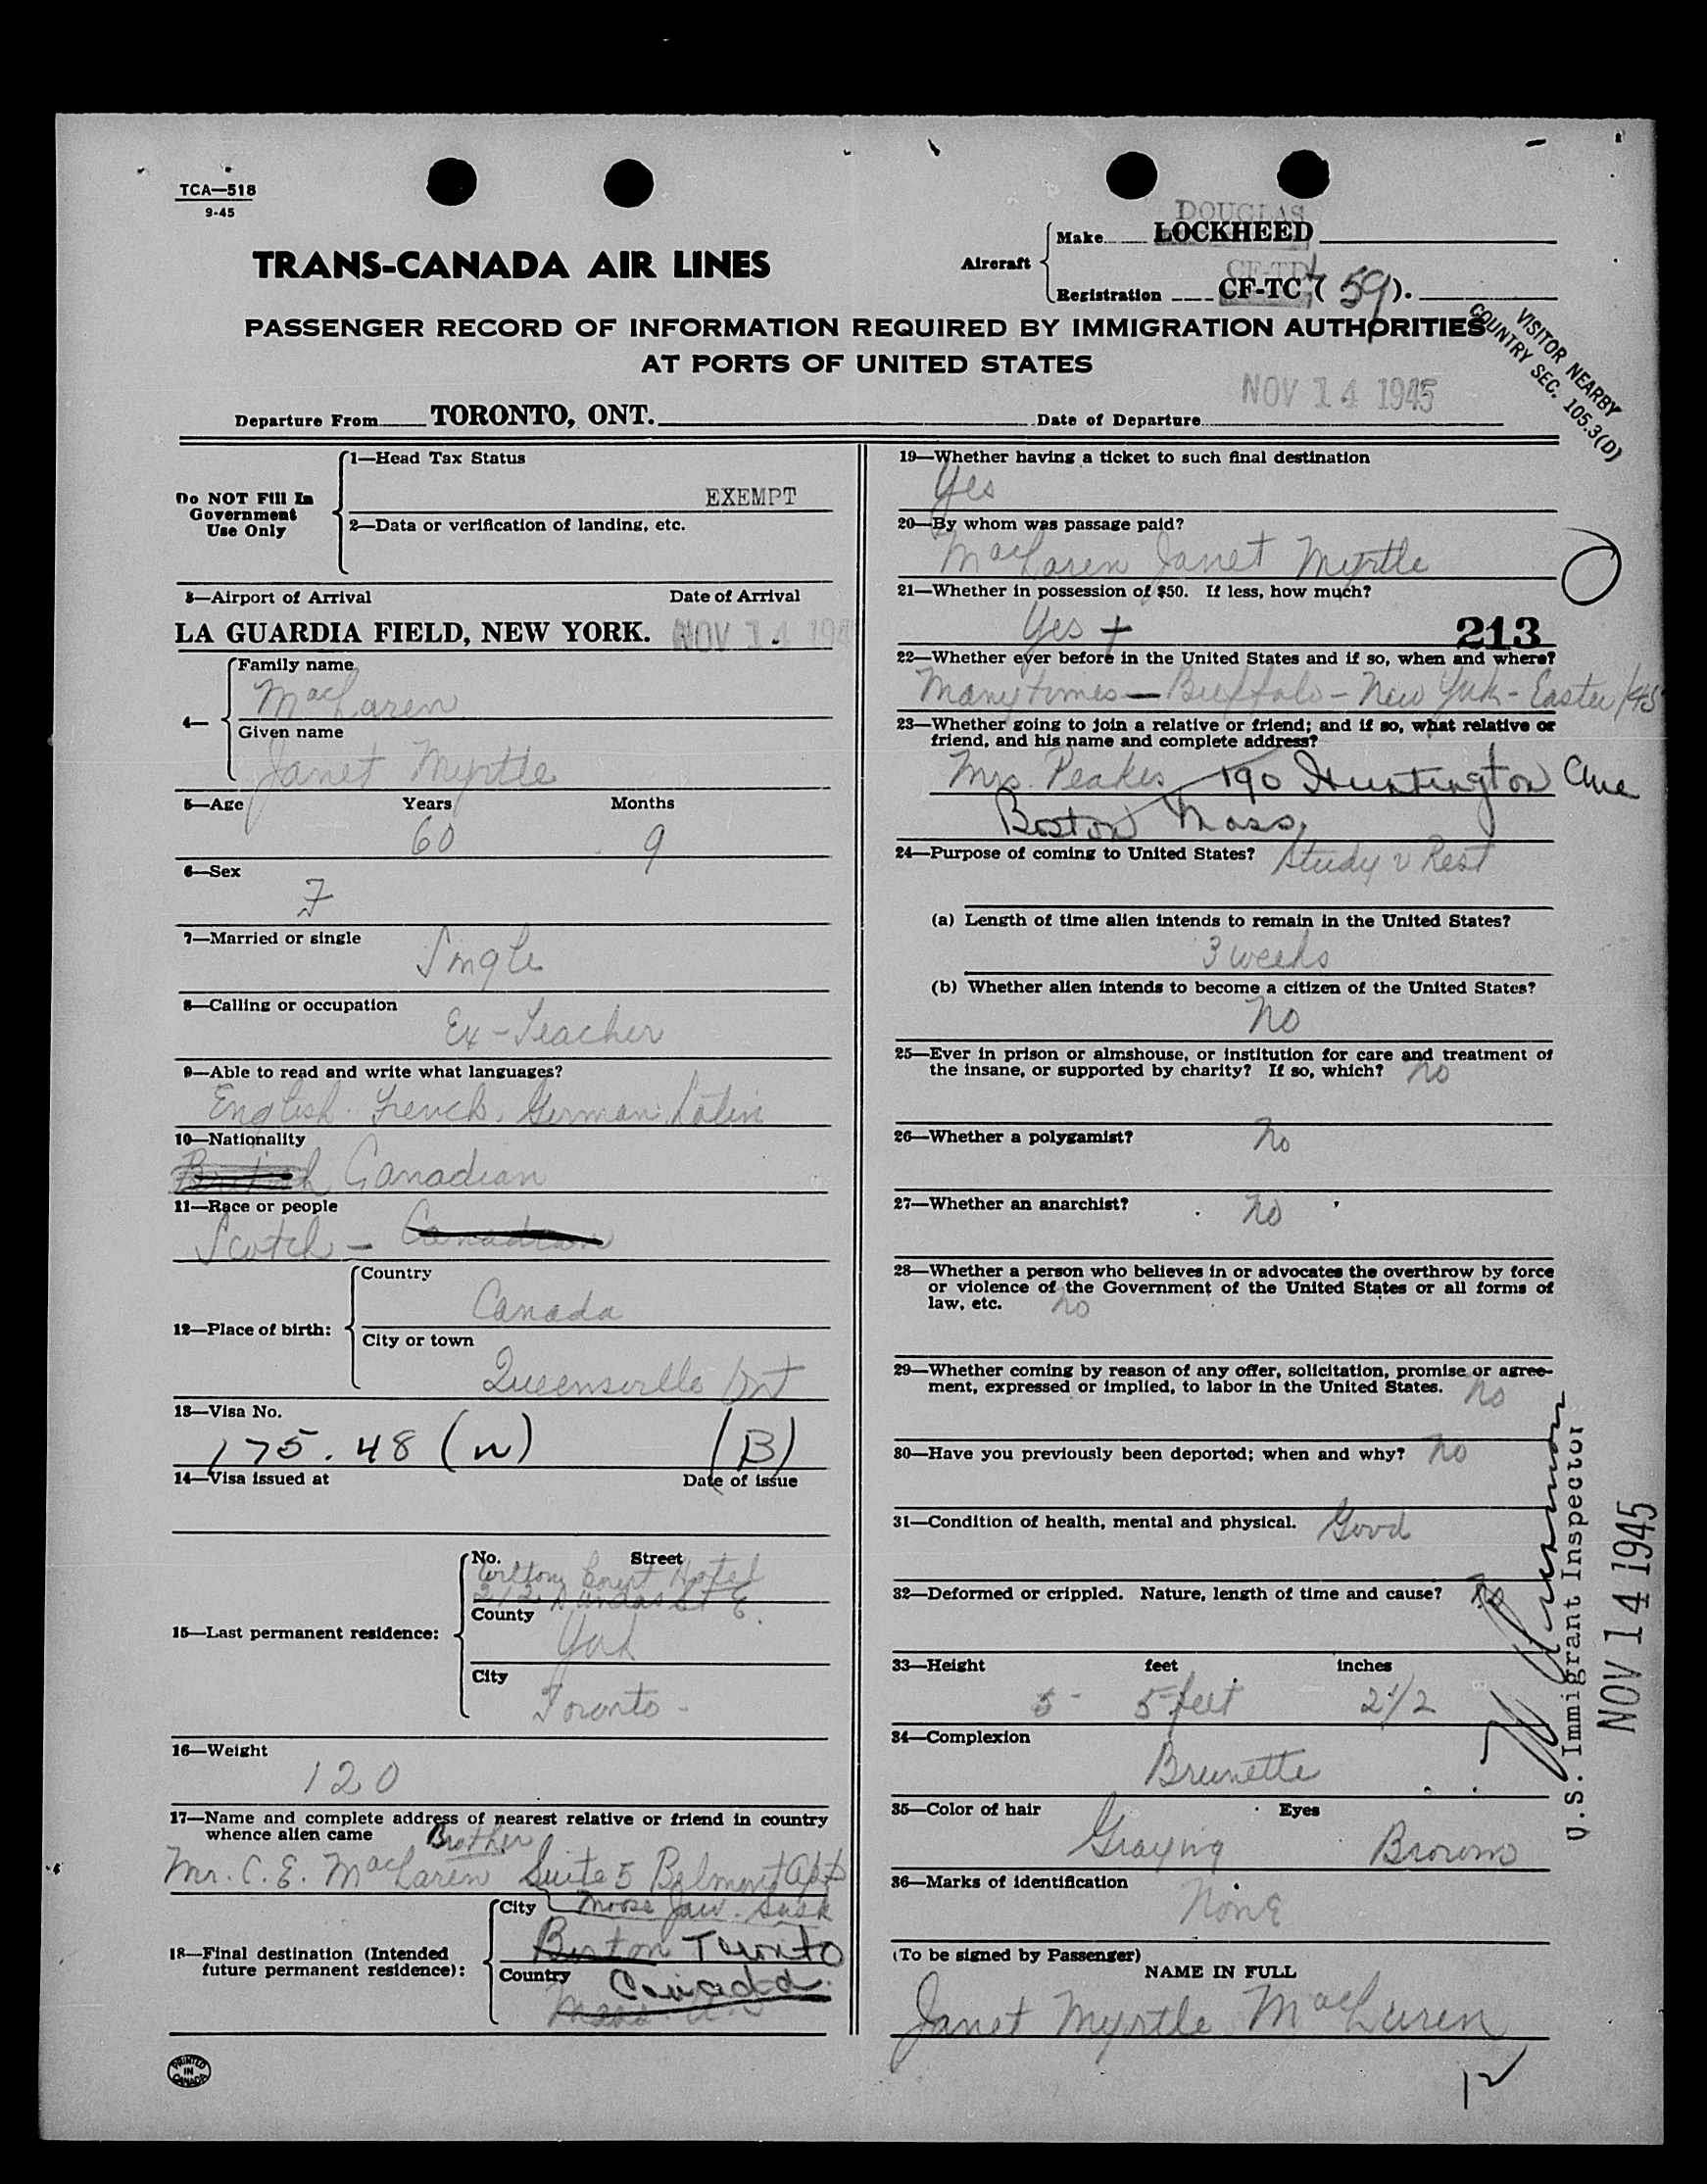 TCA—518
9-45
DOUGLAS
Aircraft
Make LOCKHEED
CF-TD
Registration CF-TC ( 59 ).
TRANS-CANADA AIR LINES
PASSENGER RECORD OF INFORMATION REQUIRED BY IMMIGRATION AUTHORITIES
AT PORTS OF UNITED STATES
VISITOR NEARBY
COUNTRY SEC. 105.3(D)
NOV 14 1945
Departure From TORONTO, ONT. Date of Departure
Do NOT Fill In
Government
Use Only
1—Head Tax Status
EXEMPT
2—Data or verification of landing, etc.
3—Airport of Arrival Date of Arrival
LA GUARDIA FIELD, NEW YORK. NOV 14 194
4—
Family name
MacLaren
Given name
Janet Myrtle
5—Age Years Months
60 9
6—Sex
F
7—Married or single
Single
8—Calling or occupation
Ex-Teacher
9—Able to read and write what languages?
English. French. German. Latin
10—Nationality
British Canadian
11—Race or people
Scotch — Canadian
12—Place of birth:
Country
Canada
City or town
Queensville Ont
13—Visa No.
175.48 (W) (B)
14—Visa issued at Date of issue
15—Last permanent residence:
No. Street
Court Hotel
212 Dundas St E.
County
York
City
Toronto -
16—Weight
120
17—Name and complete address of nearest relative or friend in country
whence alien came Brother
Mr. C. E. MacLaren Suite 5 Belmont Apts
Moose Jaw. Sask
18—Final destination (Intended
future permanent residence):
City
Boston Toronto
Country Canada
Mass. U.S
PRINTED
IN
CANADA
19—Whether having a ticket to such final destination
Yes
20—By whom was passage paid?
MacLaren Janet Myrtle
21—Whether in possession of $50. If less, how much?
Yes + 213
22—Whether ever before in the United States and if so, when and where?
Many times — Buffalo - New York - Easter/45
23—Whether going to join a relative or friend; and if so, what relative or
friend, and his name and complete address?
Mrs. Peakes 190 Huntington Ave
Boston Mass.
24—Purpose of coming to United States? Study & Rest
(a) Length of time alien intends to remain in the United States?
3 weeks
(b) Whether alien intends to become a citizen of the United States?
No
25—Ever in prison or almshouse, or institution for care and treatment of
the insane, or supported by charity? If so, which? No
26—Whether a polygamist? No
27—Whether an anarchist? No
28—Whether a person who believes in or advocates the overthrow by force
or violence of the Government of the United States or all forms of
law, etc. No
29—Whether coming by reason of any offer, solicitation, promise or agree-
ment, expressed or implied, to labor in the United States. No
30—Have you previously been deported; when and why? No
31—Condition of health, mental and physical. Good
32—Deformed or crippled. Nature, length of time and cause? No
33—Height feet inches
5 - 5 feet 2 1/2
34—Complexion
Brunette
35—Color of hair Eyes
Graying Brown
36—Marks of identification
None
(To be signed by Passenger)
NAME IN FULL
Janet Myrtle MacLaren
U.S. Immigrant Inspector
NOV 14 1945